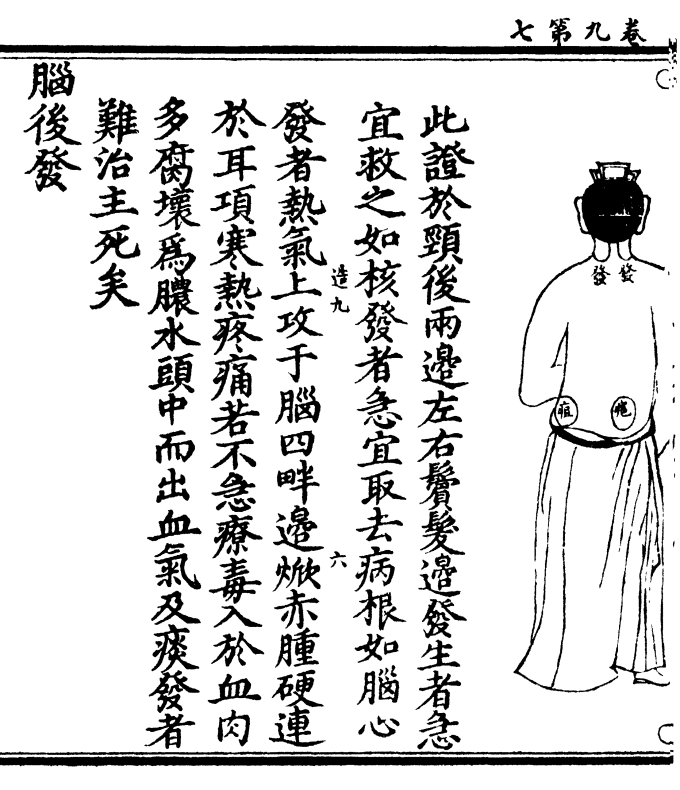 卷九第七
發
發
疽
此證於頸後兩邊左右鬢髮邊發生者急
宜救之如核發者急宜取去病根如腦心
造九
六
發者熱氣上攻于腦四畔邊焮赤腫硬連
於耳項寒熱疼痛若不急療毒入於血肉
多腐壞爲膿水頭中而出血氣及痰發者
難治主死矣
腦後發